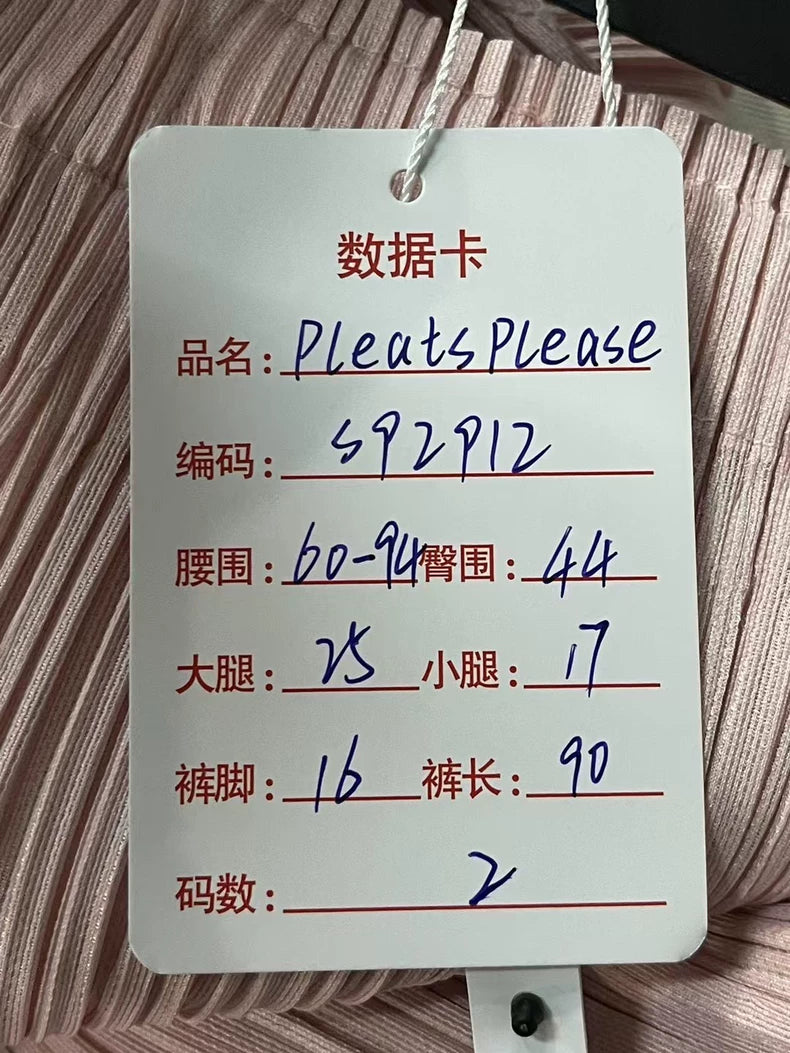 数据卡
品名：Pleats Please
编码：SP2912
腰围：60-94 臀围：44
大腿：25 小腿：17
裤脚：16 裤长：90
码数：2